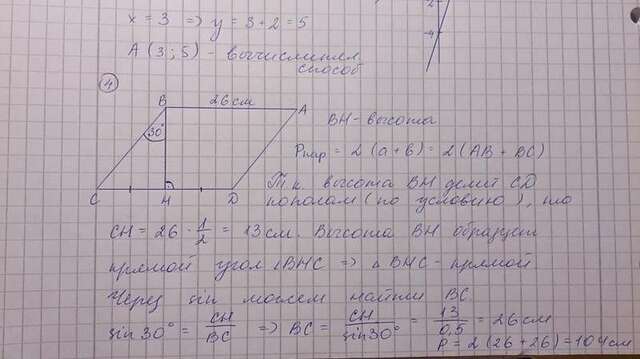 x = 3 => y = 3 + 2 = 5
A (3 ; 5) - вычислител.
способ
2
-4
4
B 26 см A
30°
BH - высота
Pпар = 2 (a + b) = 2 (AB + BC)
C H D
Т.к. высота BH делит CD
пополам (по условию), то
CH = 26 · 1/2 = 13 см. Высота BH образует
прямой угол ∠BHC => △ BHC - прямой
Через sin можем найти BC
sin 30° = CH/BC => BC = CH/sin30° = 13/0,5 = 26 см
P = 2 (26 + 26) = 104 см